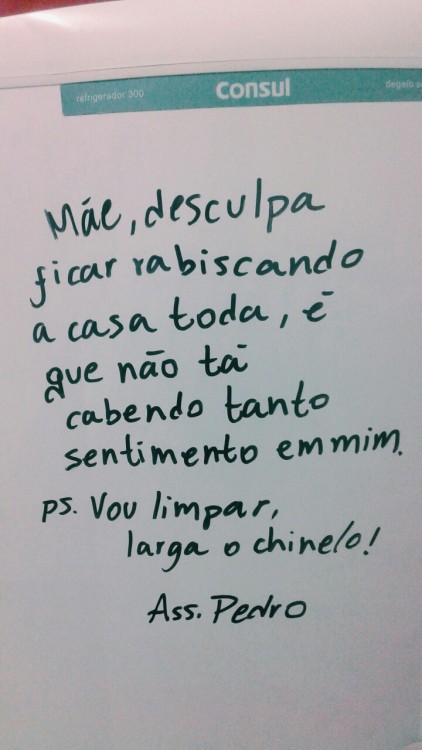 refrigerador 300 Consul degelo
Mãe, desculpa
ficar rabiscando
a casa toda, é
que não tá
cabendo tanto
sentimento em mim.
ps. Vou limpar,
larga o chinelo!
Ass. Pedro